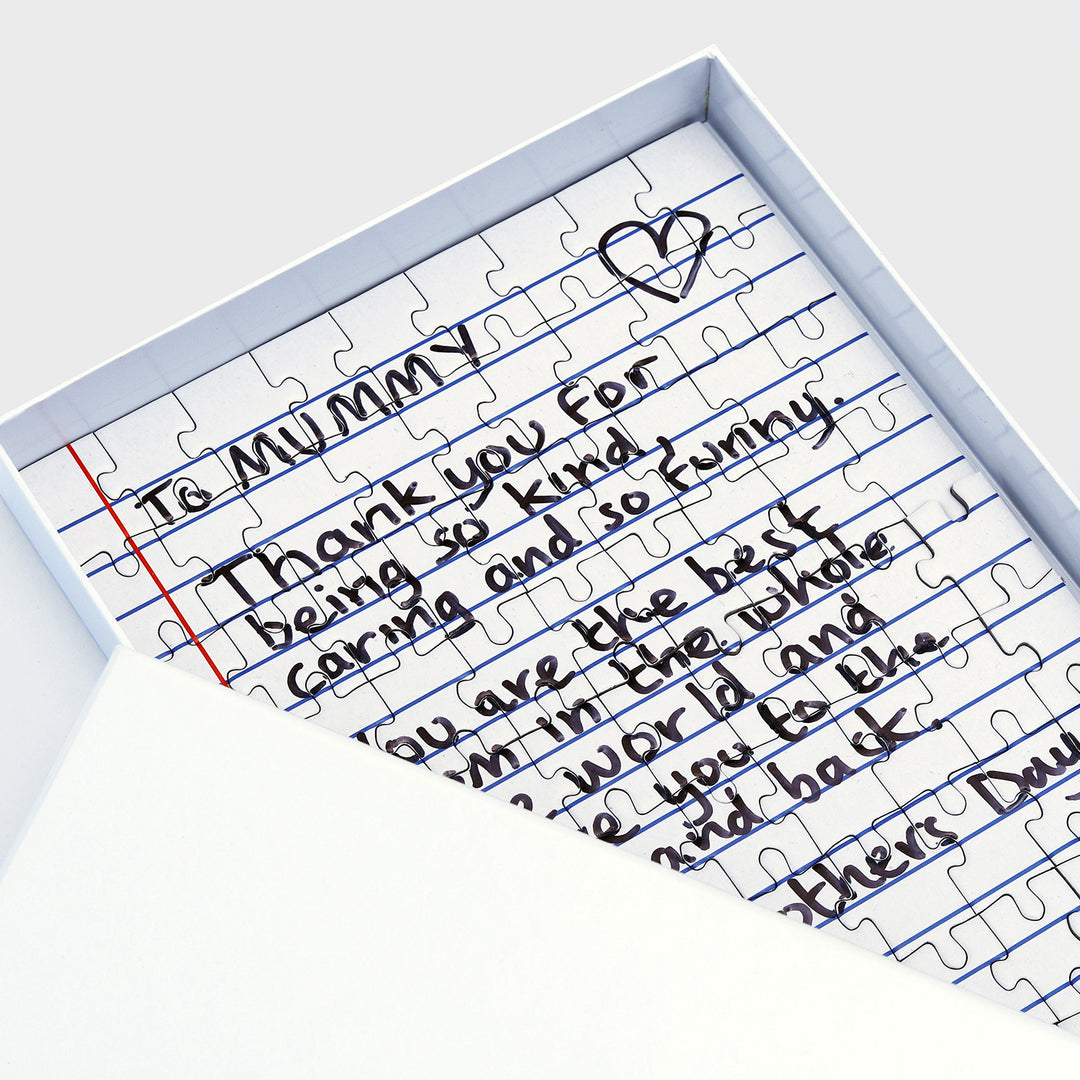 To MUMMY
Thank you for
being so kind
caring and so funny.
ou are the best
m in the whole
e world and
e you to the
and back.
others Day